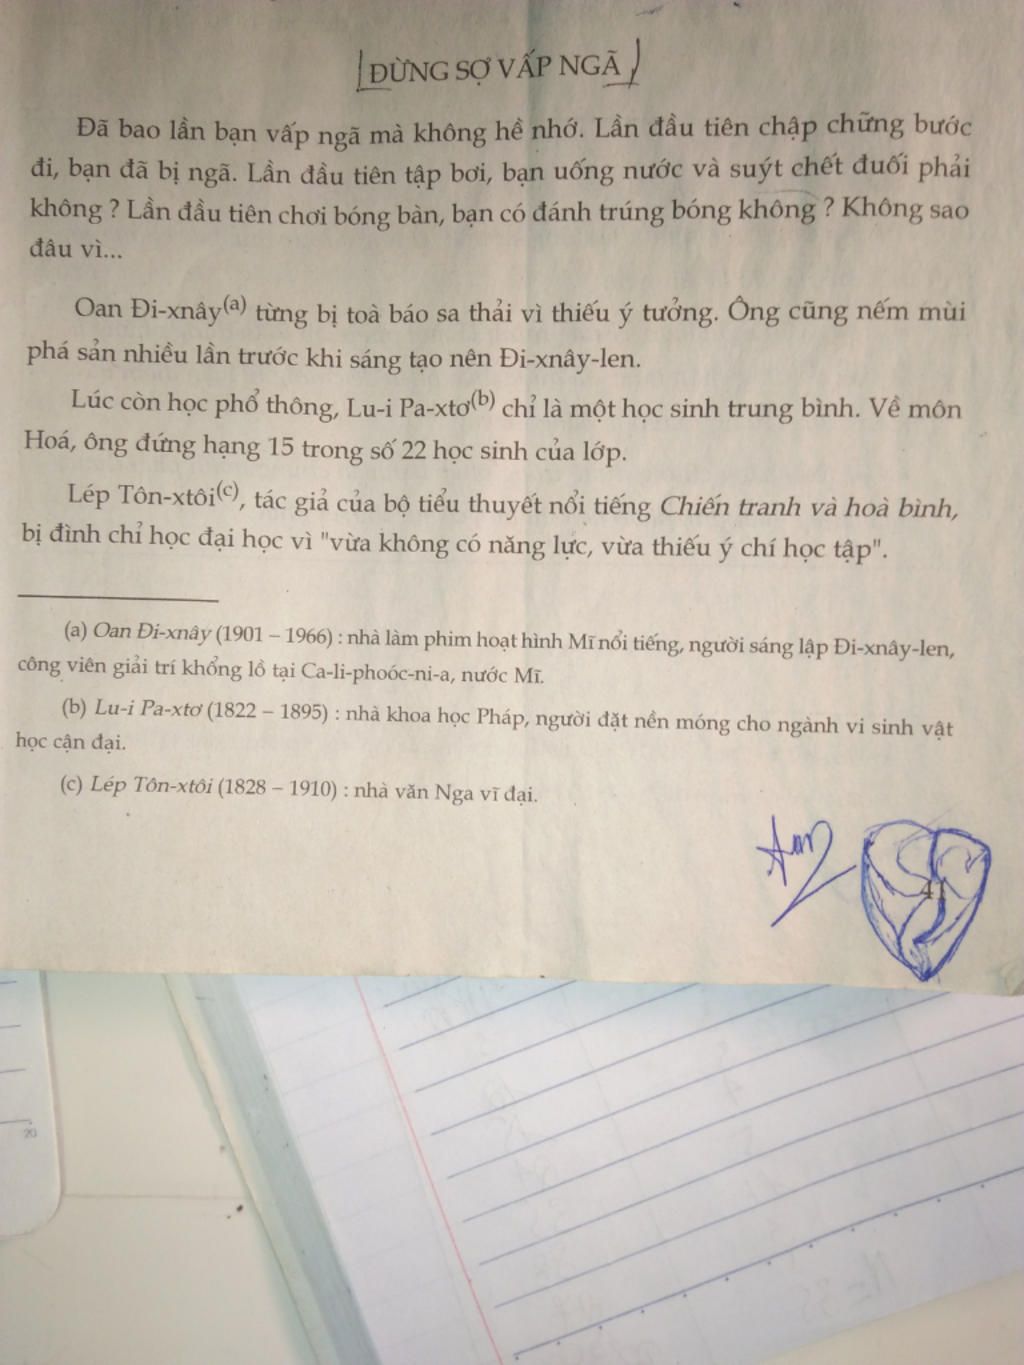 ĐỪNG SỢ VẤP NGÃ
Đã bao lần bạn vấp ngã mà không hề nhớ. Lần đầu tiên chập chững bước
đi, bạn đã bị ngã. Lần đầu tiên tập bơi, bạn uống nước và suýt chết đuối phải
không ? Lần đầu tiên chơi bóng bàn, bạn có đánh trúng bóng không ? Không sao
đâu vì...
Oan Đi-xnây(a) từng bị toà báo sa thải vì thiếu ý tưởng. Ông cũng nếm mùi
phá sản nhiều lần trước khi sáng tạo nên Đi-xnây-len.
Lúc còn học phổ thông, Lu-i Pa-xtơ(b) chỉ là một học sinh trung bình. Về môn
Hoá, ông đứng hạng 15 trong số 22 học sinh của lớp.
Lép Tôn-xtôi(c), tác giả của bộ tiểu thuyết nổi tiếng Chiến tranh và hoà bình,
bị đình chỉ học đại học vì "vừa không có năng lực, vừa thiếu ý chí học tập".
(a) Oan Đi-xnây (1901 – 1966) : nhà làm phim hoạt hình Mĩ nổi tiếng, người sáng lập Đi-xnây-len,
công viên giải trí khổng lồ tại Ca-li-phoóc-ni-a, nước Mĩ.
(b) Lu-i Pa-xtơ (1822 – 1895) : nhà khoa học Pháp, người đặt nền móng cho ngành vi sinh vật
học cận đại.
(c) Lép Tôn-xtôi (1828 – 1910) : nhà văn Nga vĩ đại.
41
20